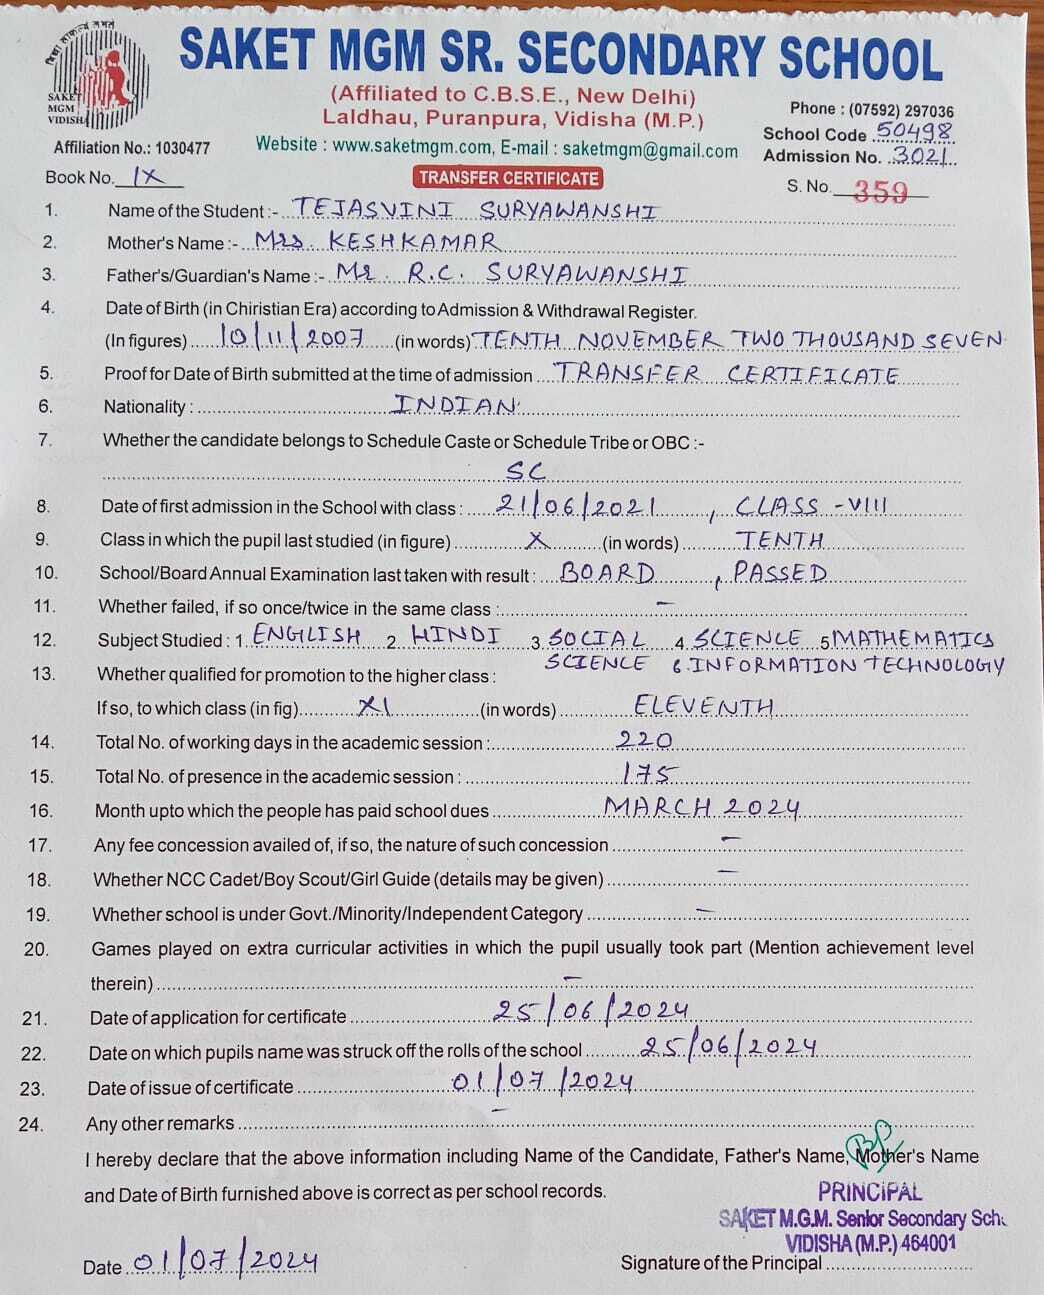 SAKET MGM SR. SECONDARY SCHOOL
(Affiliated to C.B.S.E., New Delhi)
Laldhau, Puranpura, Vidisha (M.P.)
Website : www.saketmgm.com, E-mail : saketmgm@gmail.com
SAKET
MGM
VIDISHA
Affiliation No.: 1030477
Phone : (07592) 297036
School Code 50498
Admission No. 3021
Book No. IX
TRANSFER CERTIFICATE
S. No. 359
1. Name of the Student :- TEJASVINI SURYAWANSHI
2. Mother's Name :- Mrs. KESHKAMAR
3. Father's/Guardian's Name :- Mr. R.C. SURYAWANSHI
4. Date of Birth (in Chiristian Era) according to Admission & Withdrawal Register.
(In figures) 10/11/2007 (in words) TENTH NOVEMBER TWO THOUSAND SEVEN
5. Proof for Date of Birth submitted at the time of admission TRANSFER CERTIFICATE
6. Nationality : INDIAN
7. Whether the candidate belongs to Schedule Caste or Schedule Tribe or OBC :-
SC
8. Date of first admission in the School with class : 21/06/2021, CLASS -VIII
9. Class in which the pupil last studied (in figure) X (in words) TENTH
10. School/Board Annual Examination last taken with result : BOARD, PASSED
11. Whether failed, if so once/twice in the same class : -
12. Subject Studied : 1. ENGLISH 2 HINDI 3. SOCIAL 4. SCIENCE 5 MATHEMATICS
SCIENCE 6. INFORMATION TECHNOLOGY
13. Whether qualified for promotion to the higher class :
If so, to which class (in fig) XI (in words) ELEVENTH
14. Total No. of working days in the academic session : 220
15. Total No. of presence in the academic session : 175
16. Month upto which the people has paid school dues MARCH 2024
17. Any fee concession availed of, if so, the nature of such concession -
18. Whether NCC Cadet/Boy Scout/Girl Guide (details may be given) -
19. Whether school is under Govt./Minority/Independent Category -
20. Games played on extra curricular activities in which the pupil usually took part (Mention achievement level
therein) -
21. Date of application for certificate 25/06/2024
22. Date on which pupils name was struck off the rolls of the school 25/06/2024
23. Date of issue of certificate 01/07/2024
24. Any other remarks -
I hereby declare that the above information including Name of the Candidate, Father's Name, Mother's Name
and Date of Birth furnished above is correct as per school records.
PRINCIPAL
SAKET M.G.M. Senior Secondary Scho
VIDISHA (M.P.) 464001
Date 01/07/2024
Signature of the Principal